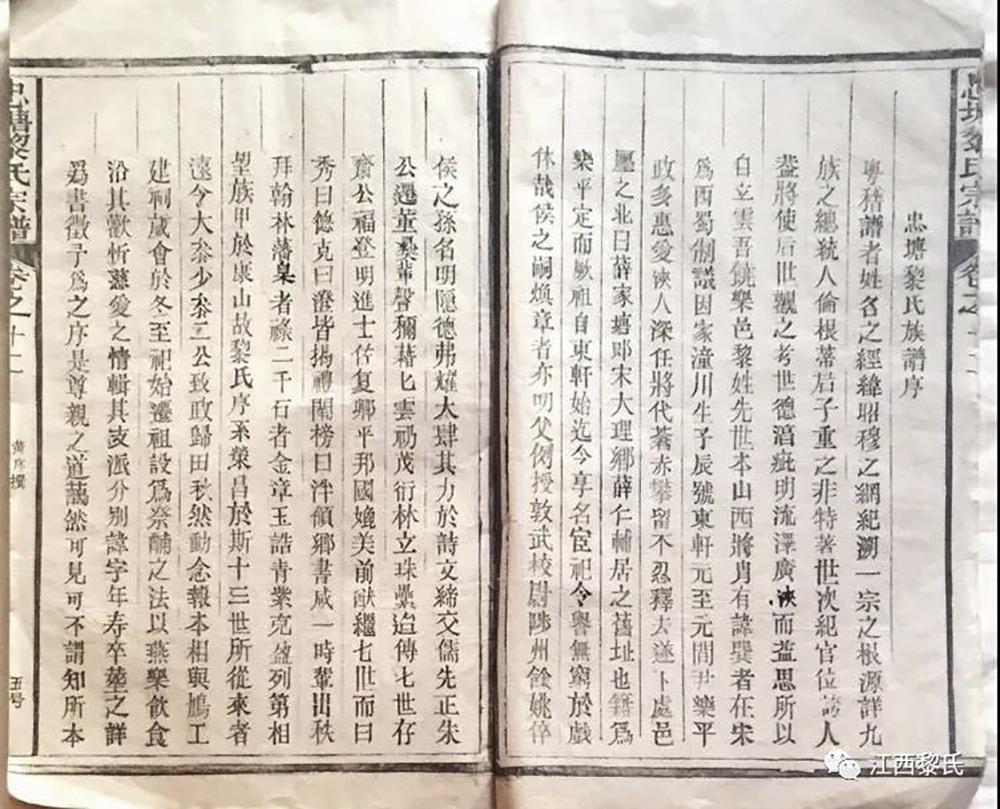 忠塘黎氏族譜序
粵稽譜者姓名之經緯昭穆之綱紀溯一宗之根源詳九
族之總統人倫根蒂后子重之非特著世次紀官位誇人
益將使后世觀之考世德滔疵明流澤廣狹而益思所以
自立雲吾饒樂邑黎姓先世本山西將肖有諱巽者在宋
爲西蜀制議因家潼川生子辰號東軒元至元間尹樂平
政多惠愛浹人深任將代蒼赤攀留不忍釋去遂卜處邑
壓之北曰薛家塘即宋大理卿薛仁輔居之舊址也籍爲
樂平定而厥祖自東軒始迄今享名宦祀令譽無窮於戲
休哉侯之嗣煥章者亦明父例授敦武校尉陟州餘姚倅
侯之孫名明隱德弗耀大肆其力於詩文締交儒先正朱
公遷董彝輩聲彌藉匕雲礽茂衍林立珠纍迨傳七世存
齋公福登明進士仕复卿平邦國媲美前猷繼七世而曰
秀曰德克曰澄皆揭禮闈榜曰泮領鄉書咸一時輩出秩
拜翰林藩臬者祿二千石者金章玉誥青業克盈列第相
望族甲於康山故黎氏序系榮昌於斯十三世所從來者
遠今大叅少叅二公致政歸田秋然動念報本相與鳩工
建祠歲會於冬至祀始遷祖設爲祭酺之法以燕樂飲食
沿其歡忻慈愛之情輯其支派分別諱字年寿卒塟之詳
爲書徵予爲之序是尊親之道藹然可見可不謂知所本
忠塘黎氏宗譜
卷之十一
黄序撰
五号
忠塘黎氏宗譜
卷之十一
江西黎氏